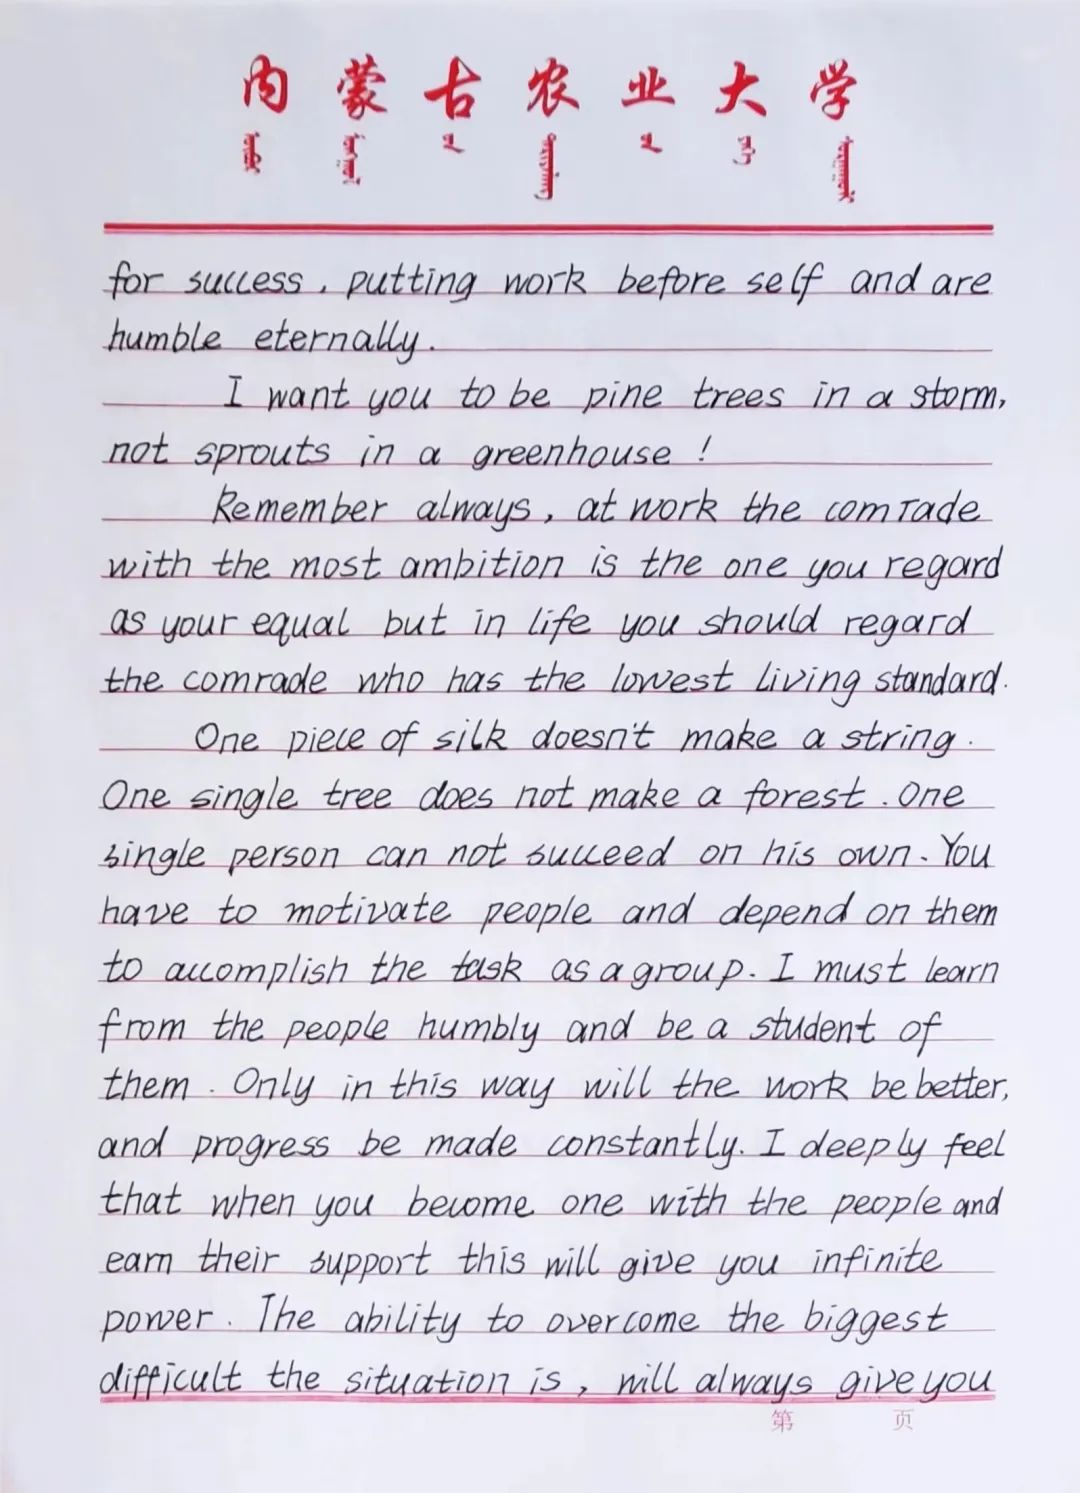 内蒙古农业大学
for success, putting work before self and are
humble eternally.
I want you to be pine trees in a storm,
not sprouts in a greenhouse !
Remember always, at work the comrade
with the most ambition is the one you regard
as your equal but in life you should regard
the comrade who has the lowest living standard.
One piece of silk doesn't make a string.
One single tree does not make a forest. One
single person can not succeed on his own. You
have to motivate people and depend on them
to accomplish the task as a group. I must learn
from the people humbly and be a student of
them. Only in this way will the work be better,
and progress be made constantly. I deeply feel
that when you become one with the people and
earn their support this will give you infinite
power. The ability to overcome the biggest
difficult the situation is, will always give you
第 页